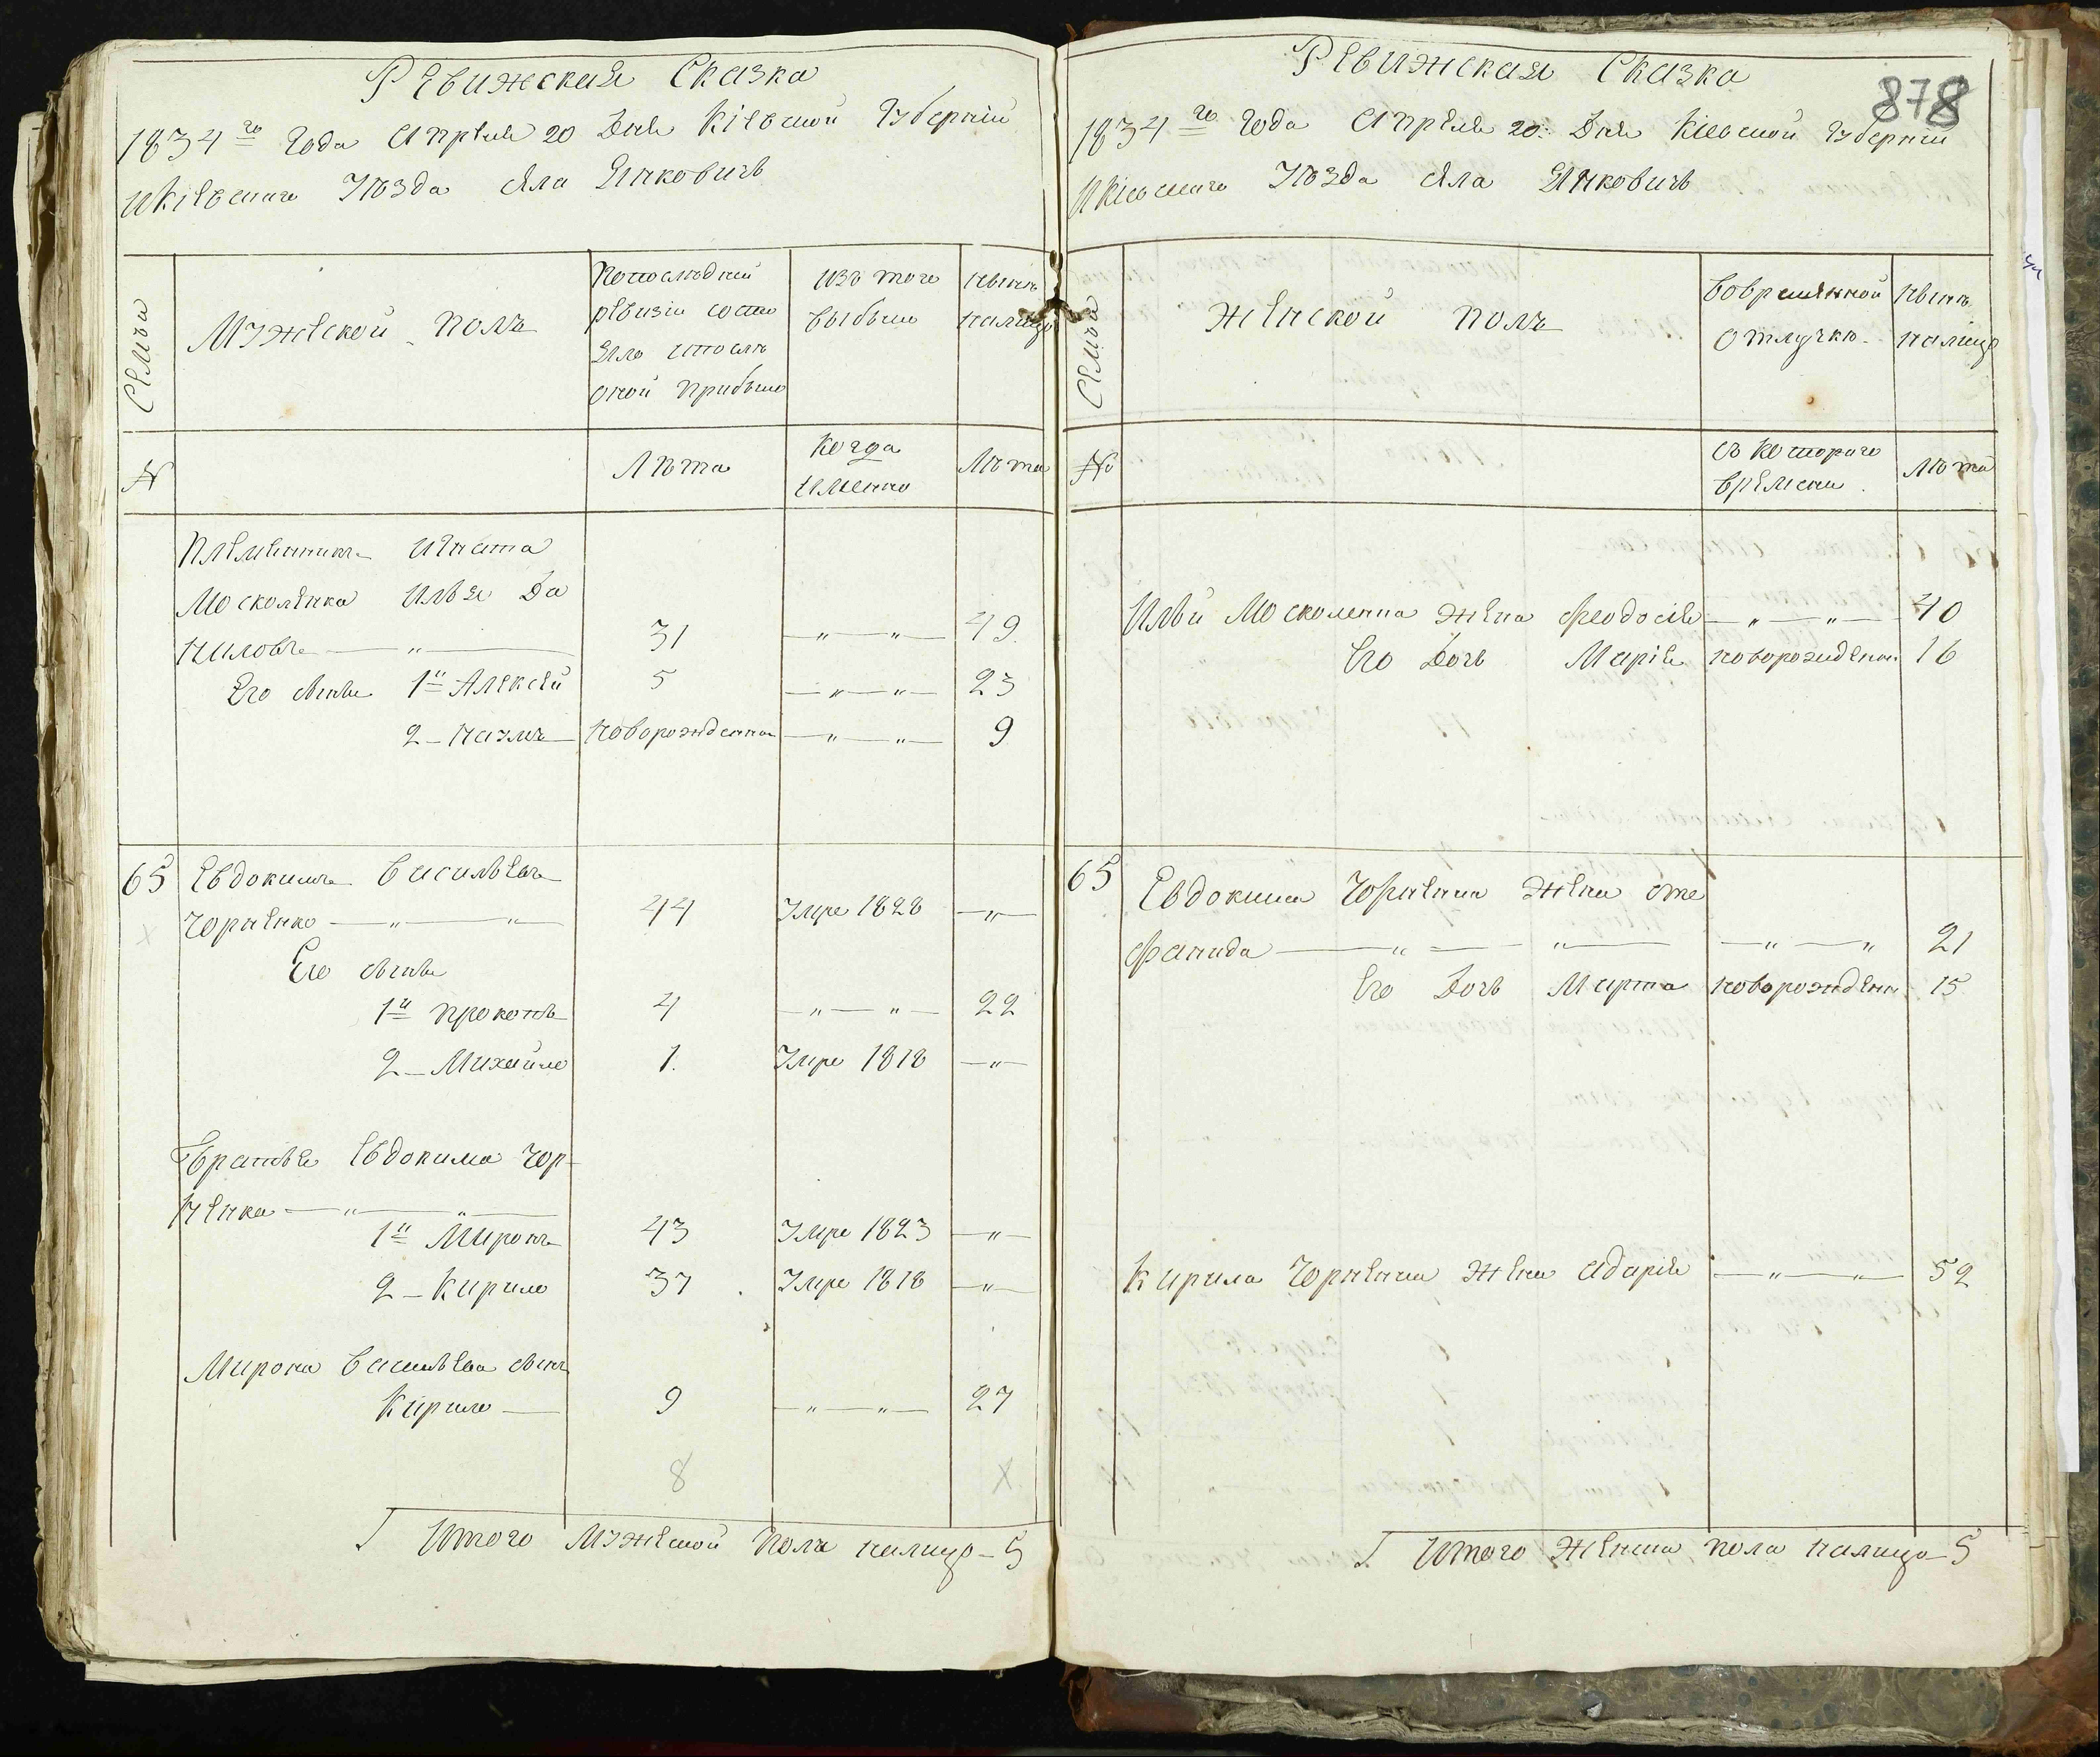 Ревижская Сказка
1834го Года Апреля 20 Дня Кіевской Губерніи
и Кіевскаго Уѣзда села Янковичъ
Семьи
Мужеской полъ
Попослѣдней
ревизіи состо
яло и послѣ
оной прибыло
изъ того
выбыло
нынѣ
налицо
№
Лѣта
Когда
именно
Лѣта
Племянникъ Игната
Москаленка Илья Да
ниловъ — " — 31 — " — " — 49
Его сынъя 1й Алексей 5 — " — " — 23
2 — Наумъ — новорожденна — " — " — 9
65 Евдокимъ Васильевъ
Чорненко — " — " 44 Умре 1828 — " —
Его сынъя
1й Прокопъ 4 — " — " — 22
2 — Михайло 1. Умре 1818 — " —
Братья Евдокима Чор-
ненка — " — " —
1й Миронъ 43 Умре 1823 — " —
2 — Кирило 37 Умре 1818 — " —
Мирона Васильева сынъ
Кирило — 9 — " — " — 27
8 X
Итого мужеской полъ налицо — 5
Ревижская Сказка
878
1834го Года Апреля 20 Дня Кіевской Губерніи
и Кіевскаго Уѣзда села Янковичъ
Семьи
Женской полъ
Вовременной
отлучкѣ
нынѣ
налицо
№
съ котораго
времени
Лѣта
Ильи Москаленка жена Феодосія — " — " — 40
Его Дочь Марія новорожденна 16
65 Евдокима Чорненка жена Сте
фанида — " — " — — " — " 21
Его Дочь Марта новорожденн 15
Кирила Чорненка жена Адарія — " — " — 52
Итого женска пола налицо — 5